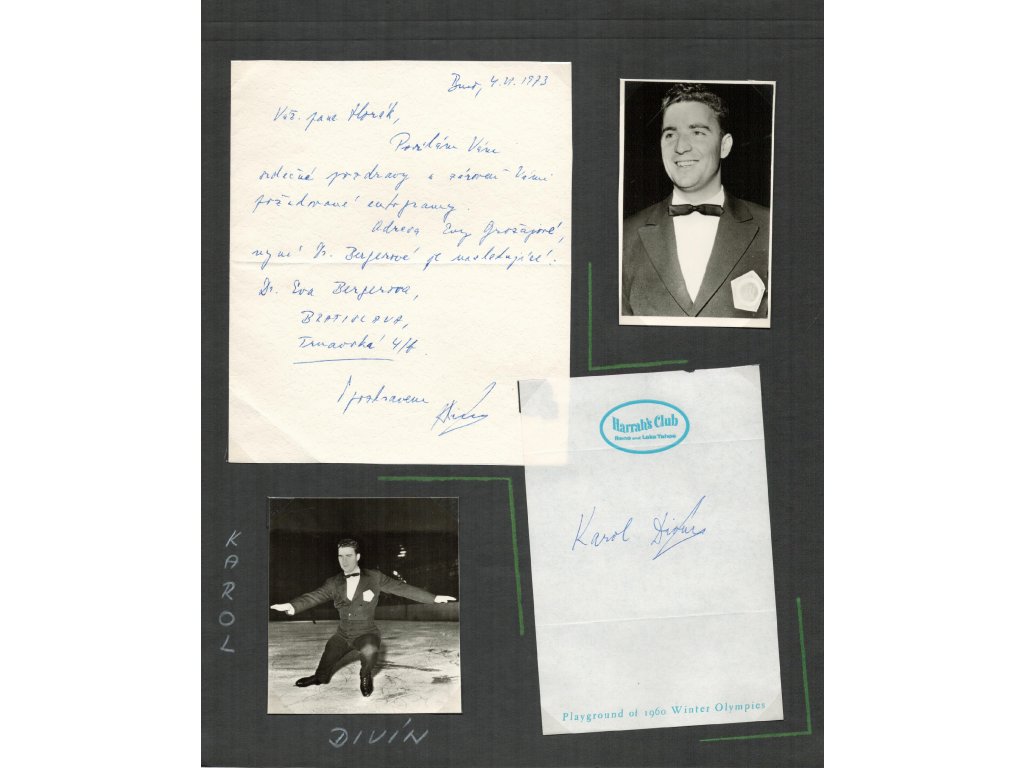 Brno, 4.VI.1973
Váž. pane Horák,
Posílám Vám
srdečné pozdravy a zároveň Vámi
požadované autogramy.
Adresa Evy Grožajové,
nyní Dr. Bergerové je následující:
Dr. Eva Bergerova,
BRATISLAVA,
Trnavská 4/f.
S pozdravem
Divín
Harrah's Club
Reno and Lake Tahoe
Karol Divín
Playground of 1960 Winter Olympics
KAROL
DIVÍN